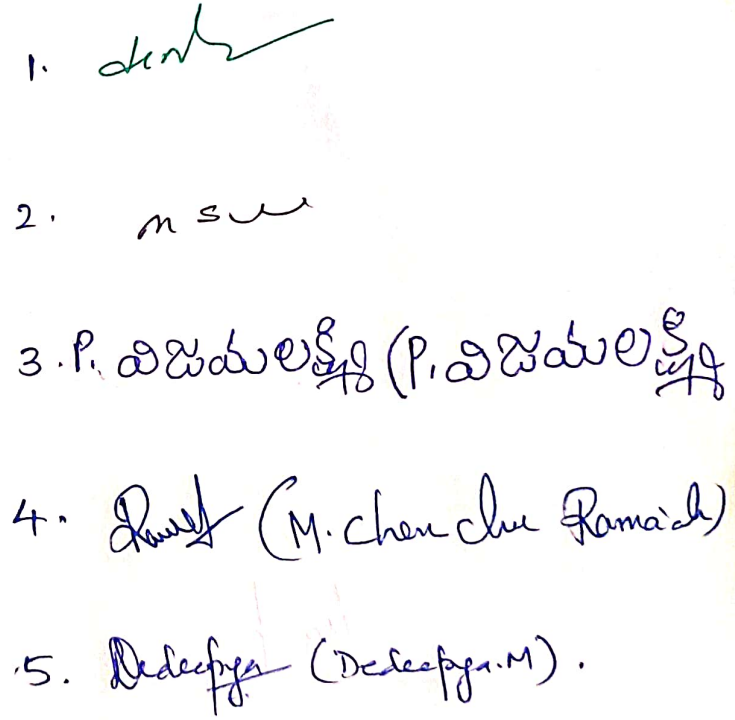 1.
2. m s
3. P. విజయలక్ష్మి (P. విజయలక్ష్మి
4. (M. Chenchu Ramaiah)
5. Dedeepya (Dedeepya.M).